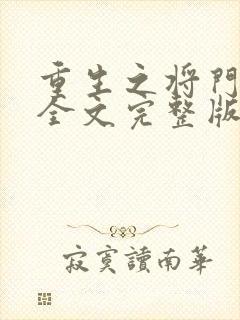 重生之将门
全文完整版
寂寞讀南華